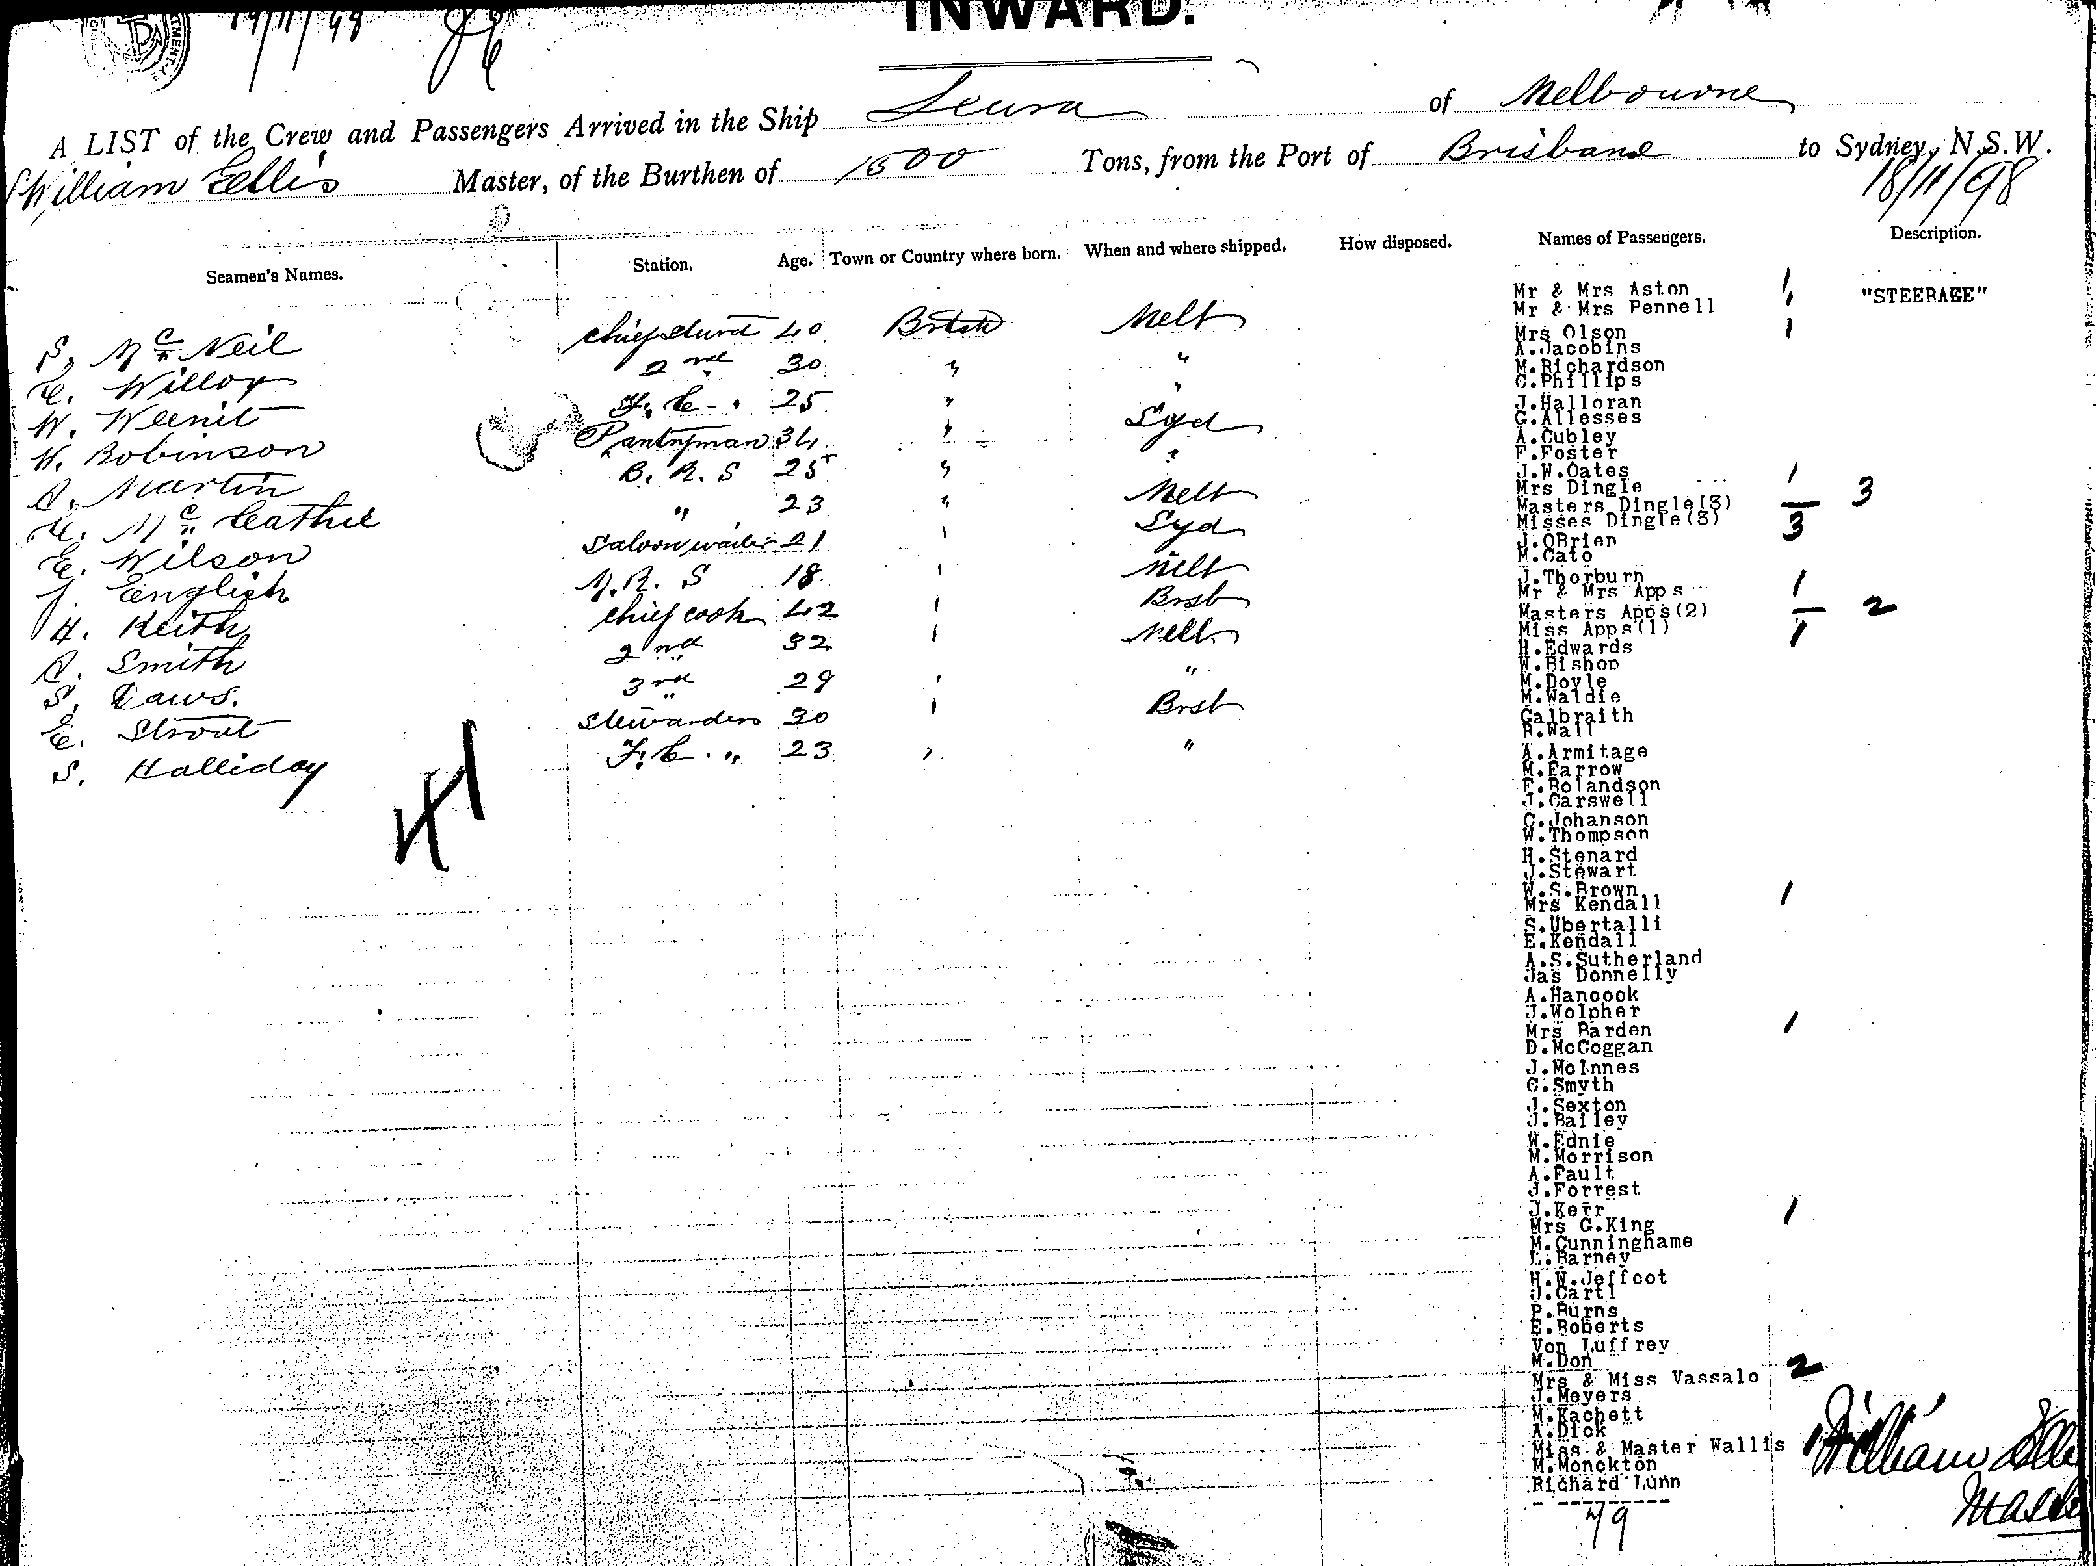 INWARD.
A LIST of the Crew and Passengers Arrived in the Ship Leura of Melbourne
William Ellis Master, of the Burthen of 1500 Tons, from the Port of Brisbane to Sydney, N.S.W.
18/11/98
Seamen's Names. Station. Age. Town or Country where born. When and where shipped. How disposed. Names of Passengers. Description.
S. McNeil chief stwd 40 British Melb
E. Willox 2nd 30 " "
W. Weenit F. C. " 25 " "
W. Robinson Pantryman 34 " Syd
A. Martin B. R. S 25 " "
McCathie " 23 " Melb
E. Wilson Saloon waiter 21 " Syd
J. English M.R. S 18 " Melb
H. Keith chief cook 42 " Brsb
A. Smith 2nd " 32 " Melb
S. Daws. 3rd " 29 " "
E. Strout Stewardess 30 " Brsb
S. Halliday F. C. " 23 " "
41
"STEERAGE"
Mr & Mrs Aston 1
Mr & Mrs Pennell 1
Mrs Olson 1
A.Jacobins
M.Richardson
C.Phillips
J.Halloran
G.Allesses
A.Cubley
F.Foster
J.W.Oates
Mrs Dingle 1
Masters Dingle(3) — 3
Misses Dingle(3) 3
J.OBrien
M.Cato
J.Thorburn
Mr & Mrs Apps 1
Masters Apps(2) — 2
Miss Apps(1) 1
H.Edwards
W.Bishop
M.Doyle
M.Waldie
Galbraith
R.Wall
A.Armitage
M.Farrow
F.Rolandson
J.Carswell
C.Johanson
W.Thompson
H.Stenard
J.Stewart
W.S.Brown
Mrs Kendall 1
S.Ubertalli
E.Kendall
A.S.Sutherland
Jas Donnelly
A.Hancock
J.Wolpher
Mrs Barden 1
D.McCoggan
J.McInnes
G.Smyth
J.Sexton
J.Bailey
W.Ednie
M.Morrison
A.Fault
J.Forrest
J.Kerr
Mrs G.King 1
M.Cunninghame
L.Barney
H.W.Jeffcot
J.Cartl
P.Burns
E.Roberts
Von Luffrey
M.Don
Mrs & Miss Vassalo 2
J.Meyers
M.Kachett
A.Dick
Miss & Master Wallis 1
M.Monckton
Richard Lunn
79
William Ellis
Master